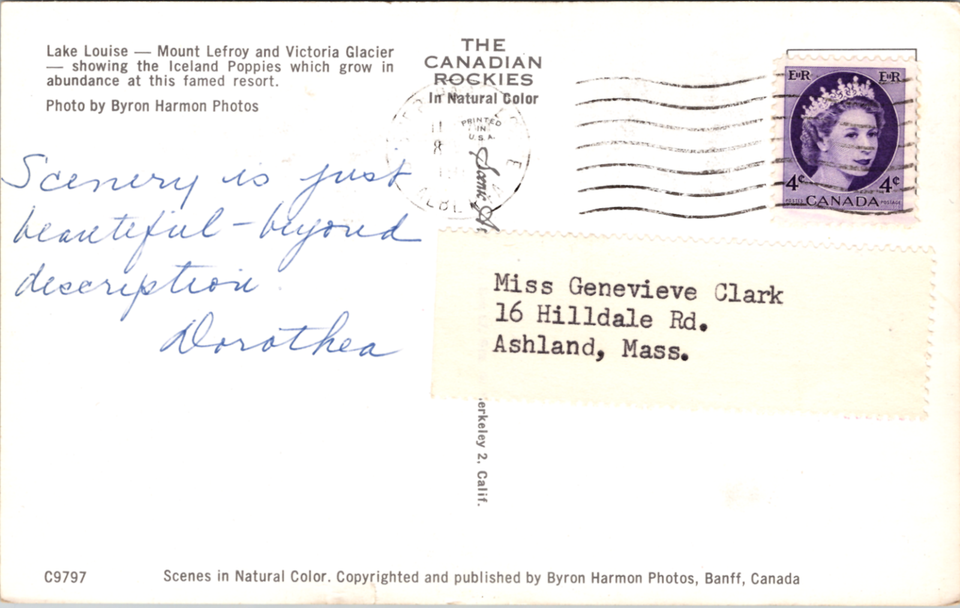 Lake Louise — Mount Lefroy and Victoria Glacier
— showing the Iceland Poppies which grow in
abundance at this famed resort.
Photo by Byron Harmon Photos
THE
CANADIAN
ROCKIES
In Natural Color
PRINTED
IN
U.S.A.
Scenic
EIIR EIIR
4¢ 4¢
POSTES CANADA POSTAGE
Scenery is just
beautiful - beyond
description.
Dorothea
Miss Genevieve Clark
16 Hilldale Rd.
Ashland, Mass.
erkeley 2, Calif.
C9797
Scenes in Natural Color. Copyrighted and published by Byron Harmon Photos, Banff, Canada